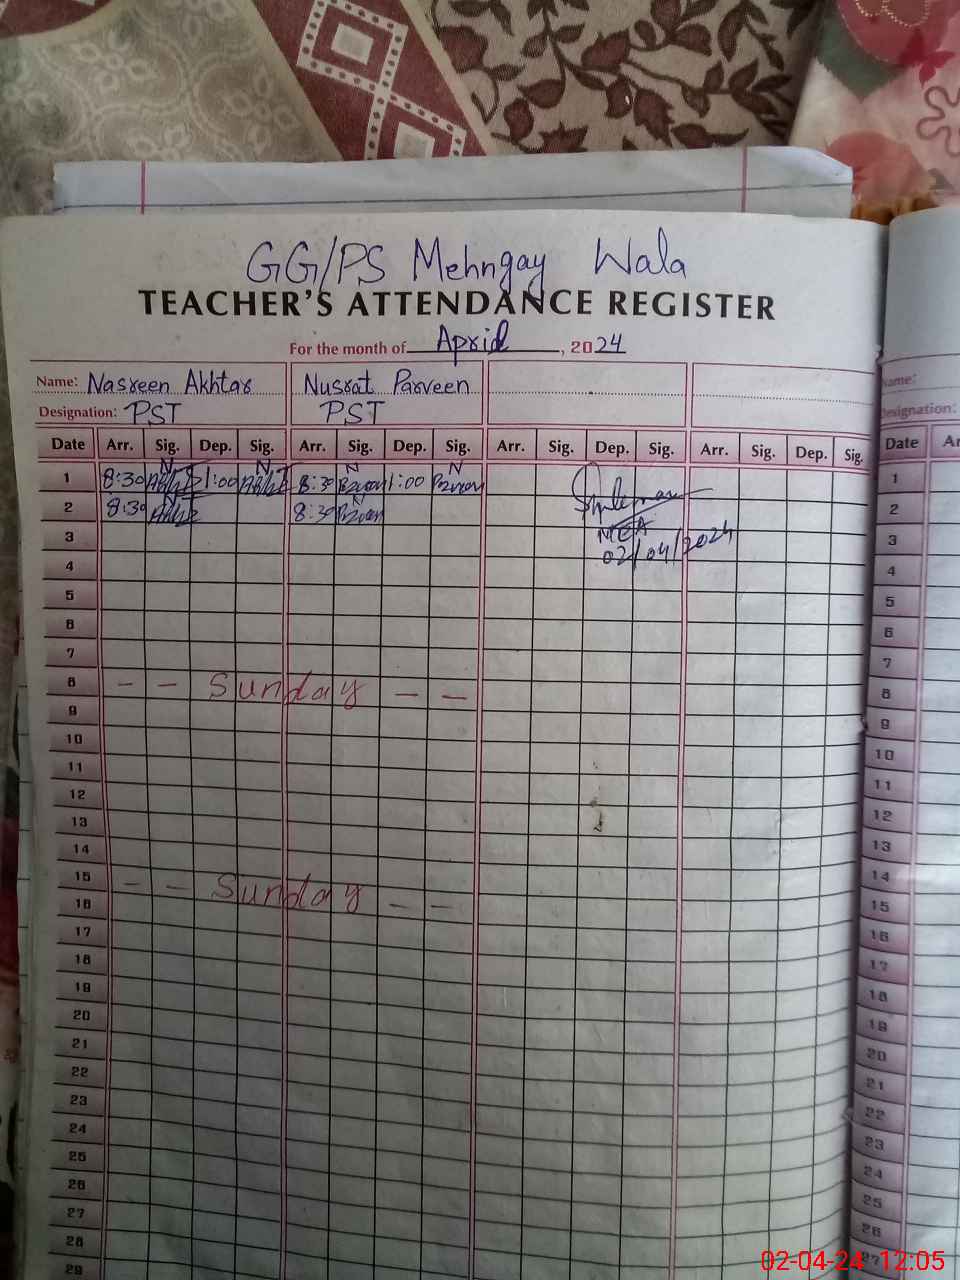 GG/PS Mehngay Wala
TEACHER'S ATTENDANCE REGISTER
For the month of April, 2024
Name: Nasreen Akhtar Nusrat Parveen
Designation: PST PST
Date Arr. Sig. Dep. Sig. Arr. Sig. Dep. Sig. Arr. Sig. Dep. Sig. Arr. Sig. Dep. Sig.
1 8:30 1:00 8:30 1:00
2 8:30 8:30
3 MEA
4 02/04/2024
5
6
7
8 - - Sunday - -
9
10
11
12
13
14
15 - - Sunday - -
16
17
18
19
20
21
22
23
24
25
26
27
28
29
Name:
Designation:
Date
1
2
3
4
5
6
7
8
9
10
11
12
13
14
15
16
17
18
19
20
21
22
23
24
25
26
27
02-04-24 12:05